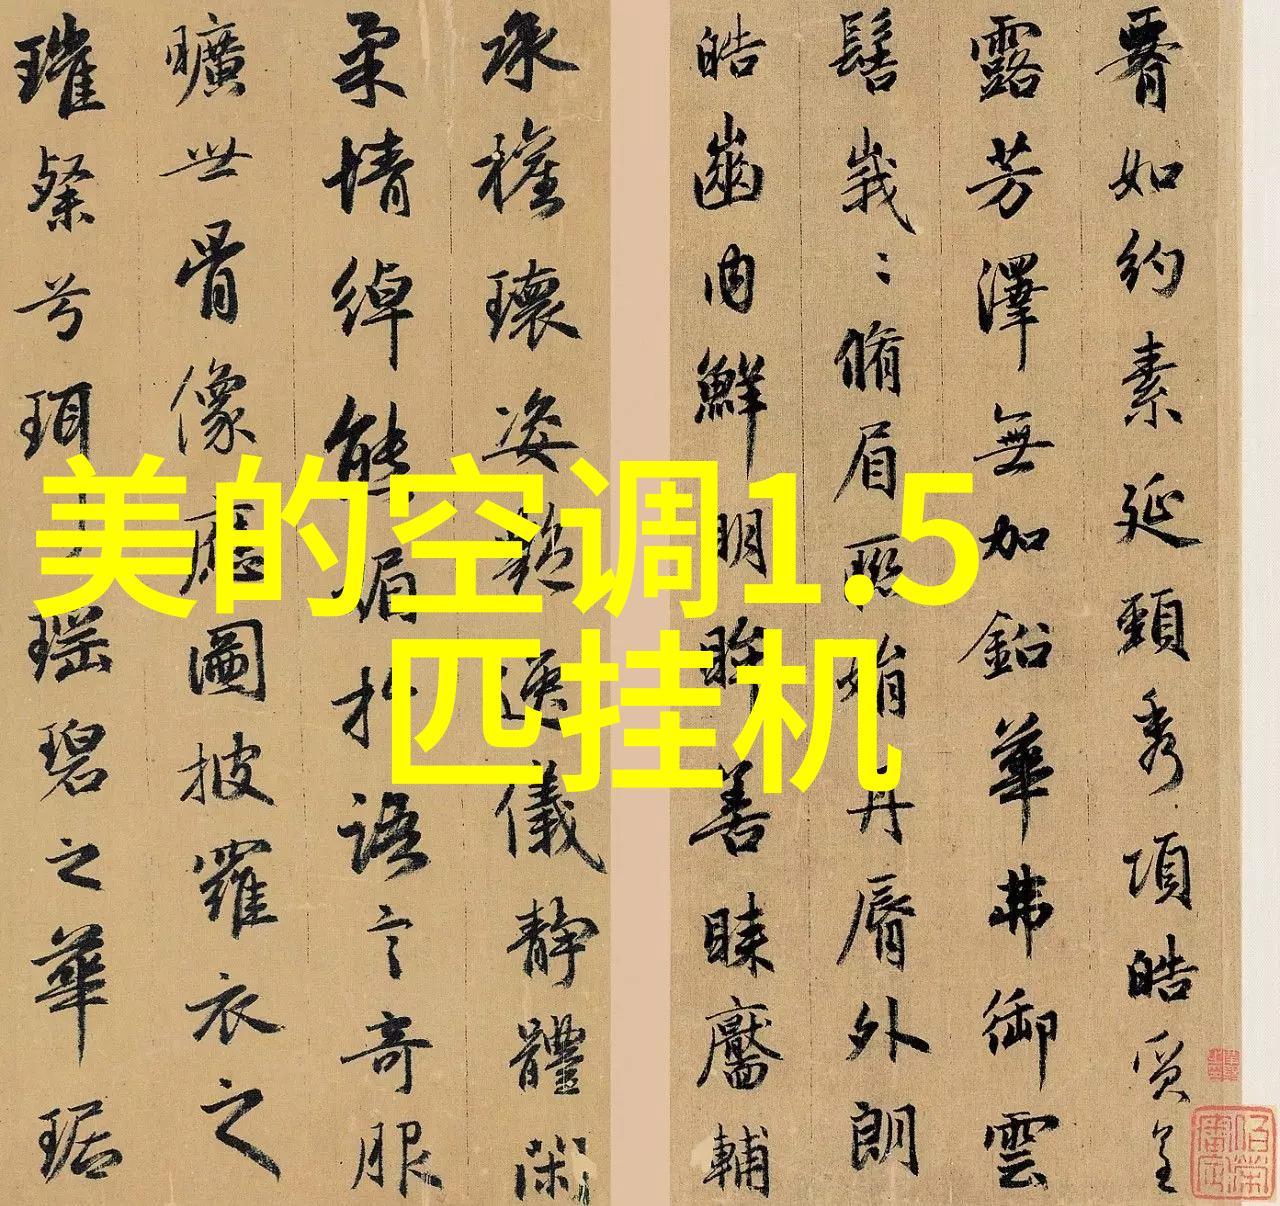 美的空调1.5
匹挂机
腰如約素延頸秀項皓質呈
露芳澤無加鉛華弗御雲
髻峩〻脩眉聯娟丹脣外朗
皓齒内鮮明眸善睞靨輔
承權瓌姿艷逸儀静體閑
柔情綽態媚於語言奇服
曠世骨像應圖披羅衣之
璀粲兮珥瑶碧之華琚